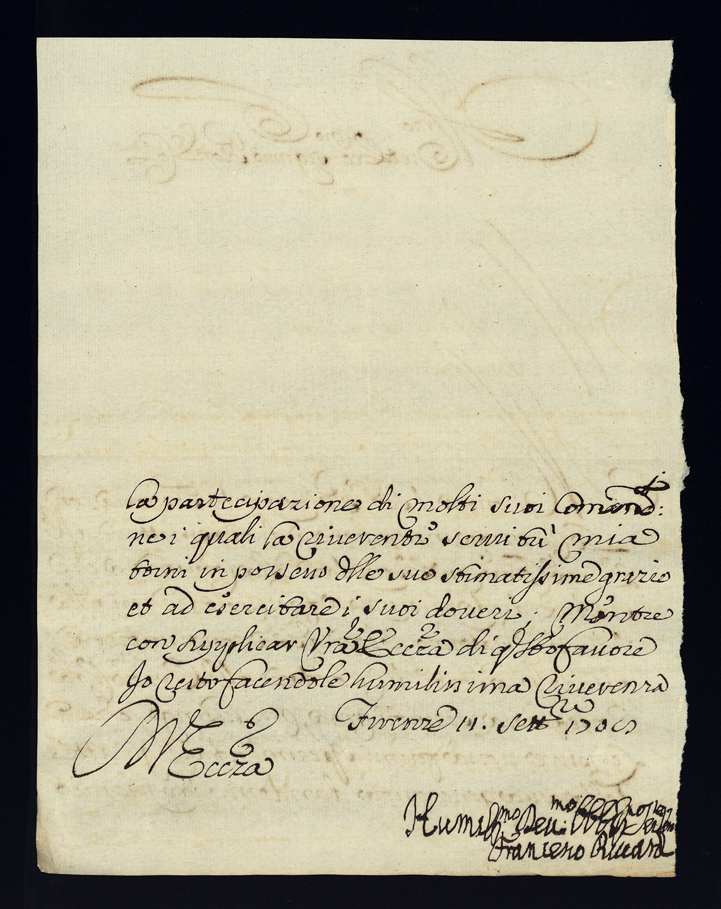 la partecipazione di molti suoi Comand:ti
ne i quali la riverente servitù mia
torni in possesso dlle sue stimatissime grazie
et ad esercitare i suoi doveri; Mentre
con supplicar Vra Eccza di qsto favore
Io resto facendole humilissima riverenza
Firenze 11. Settre
VEccza
Humilmo Devmo Obblmo
Francesco Riccardi